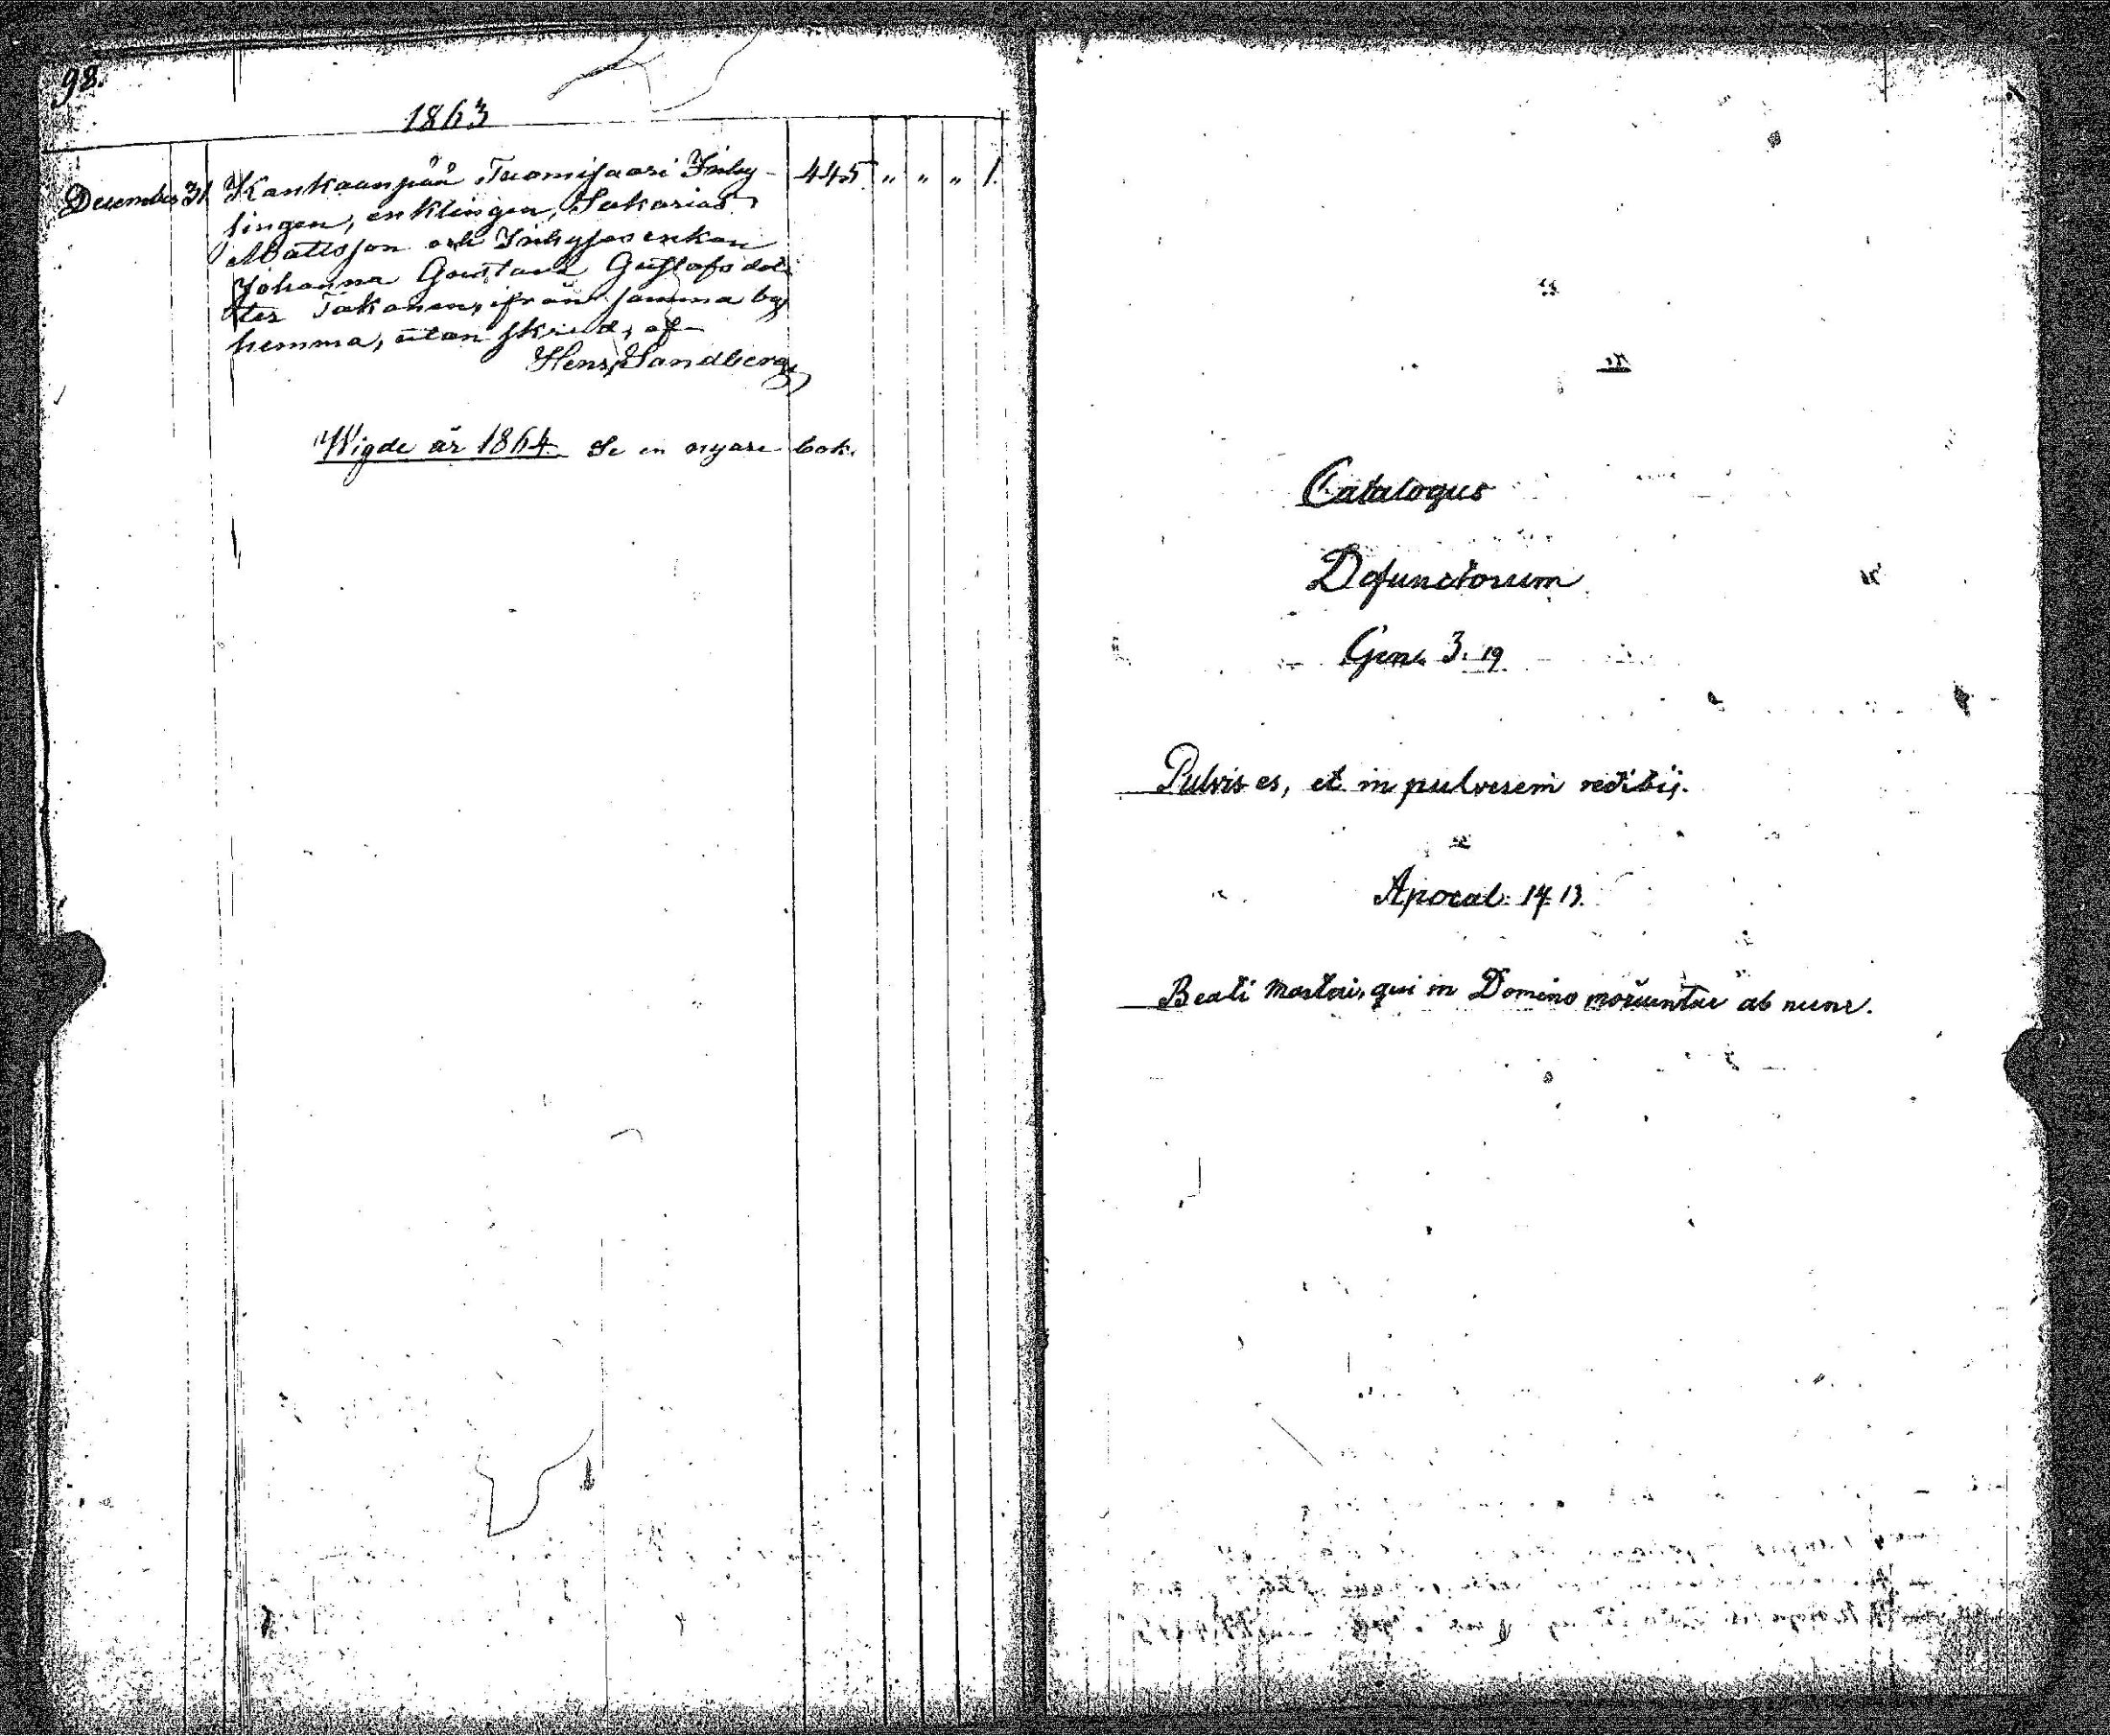 98.
1863
December 31 Kankaanpää Tuomisaari Inhy- 445. " " " 1.
lingen, enklingen, Sakarias
Mattsson och Inhyses enkan
Johanna Gustava Gustafsdot-
ter Takanen, ifrån samma by
hemma, utan skrud, af
Henr. Sandberg
Wigde år 1864. Se en nyare bok.
Catalogus
Defunctorum
Gen. 3. 19
Pulvis es, et in pulverem redibis.
Apocal. 14. 13.
Beati mortui, qui in Domino moriuntur ab nunc.